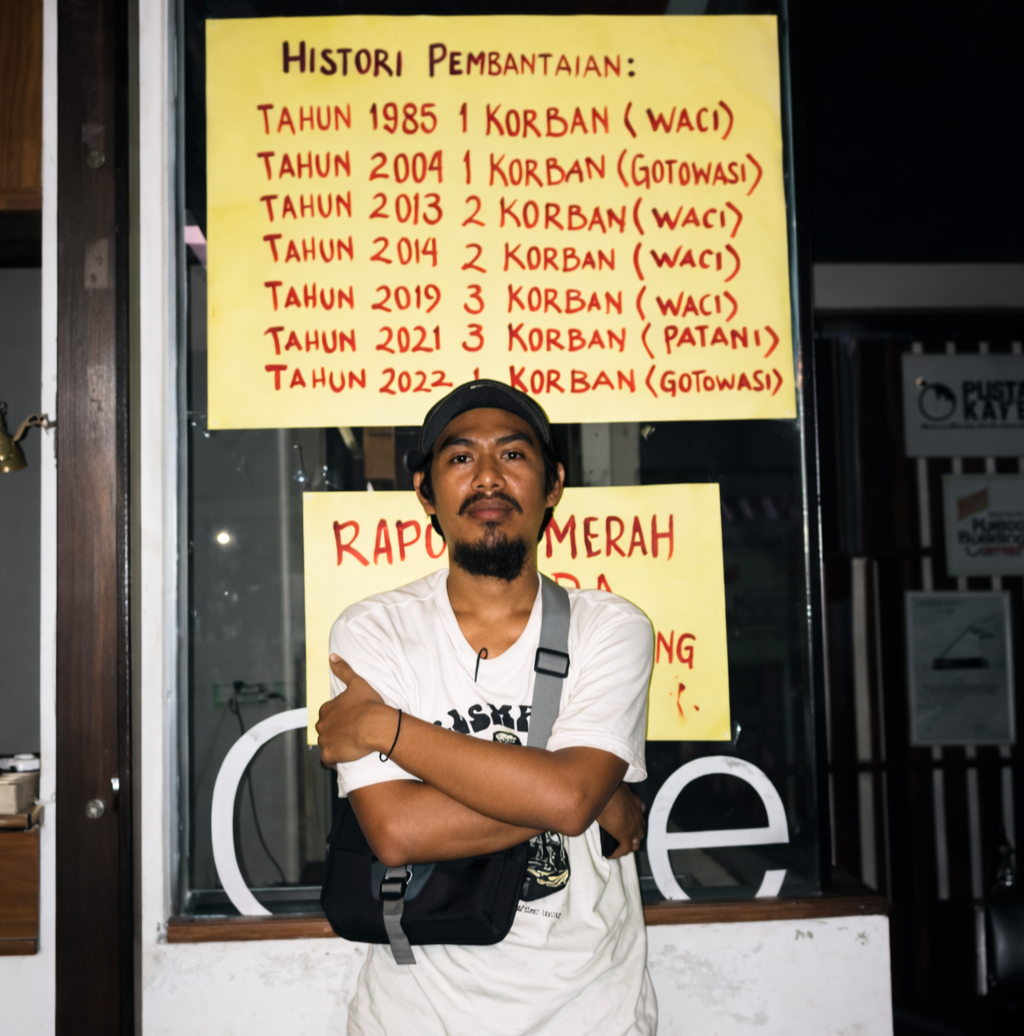 HISTORI PEMBANTAIAN:
TAHUN 1985 1 KORBAN (WACI)
TAHUN 2004 1 KORBAN (GOTOWASI)
TAHUN 2013 2 KORBAN (WACI)
TAHUN 2014 2 KORBAN (WACI)
TAHUN 2019 3 KORBAN (WACI)
TAHUN 2021 3 KORBAN (PATANI)
TAHUN 2022 1 KORBAN (GOTOWASI)
RAPO MERAH
NG
C e
PUSTA
KAY